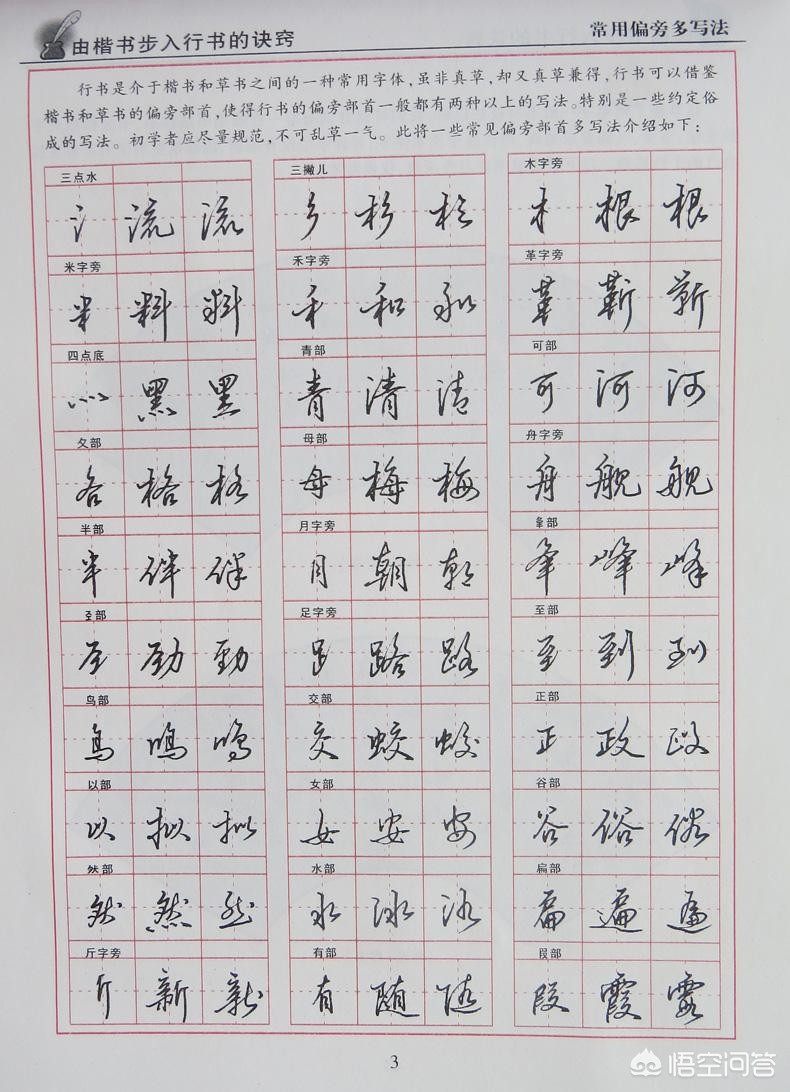 由楷书步入行书的诀窍
常用偏旁多写法
行书是介于楷书和草书之间的一种常用字体，虽非真草，却又真草兼得，行书可以借鉴
楷书和草书的偏旁部首，使得行书的偏旁部首一般都有两种以上的写法。特别是一些约定俗
成的写法。初学者应尽量规范，不可乱草一气。此将一些常见偏旁部首多写法介绍如下：
三点水 三撇儿 木字旁
氵 流 流 彡 杉 杉 木 根 根
米字旁 禾字旁 革字旁
米 料 料 禾 和 和 革 靳 靳
四点底 青部 可部
灬 黑 黑 青 清 清 可 河 河
夂部 母部 舟字旁
各 格 格 母 梅 梅 舟 舰 舰
半部 月字旁 夆部
半 伴 伴 月 朝 朝 夆 峰 峰
圣部 足字旁 至部
劲 劲 𧾷 路 路 至 到 到
鸟部 交部 正部
鸟 鸣 鸣 交 蛟 蛟 正 政 政
以部 女部 谷部
以 拟 拟 女 安 安 谷 俗 俗
然部 水部 扁部
然 然 然 水 泳 泳 扁 遍 遍
斤字旁 有部 叚部
斤 新 新 有 随 随 叚 霞 霞
3
悟空问答